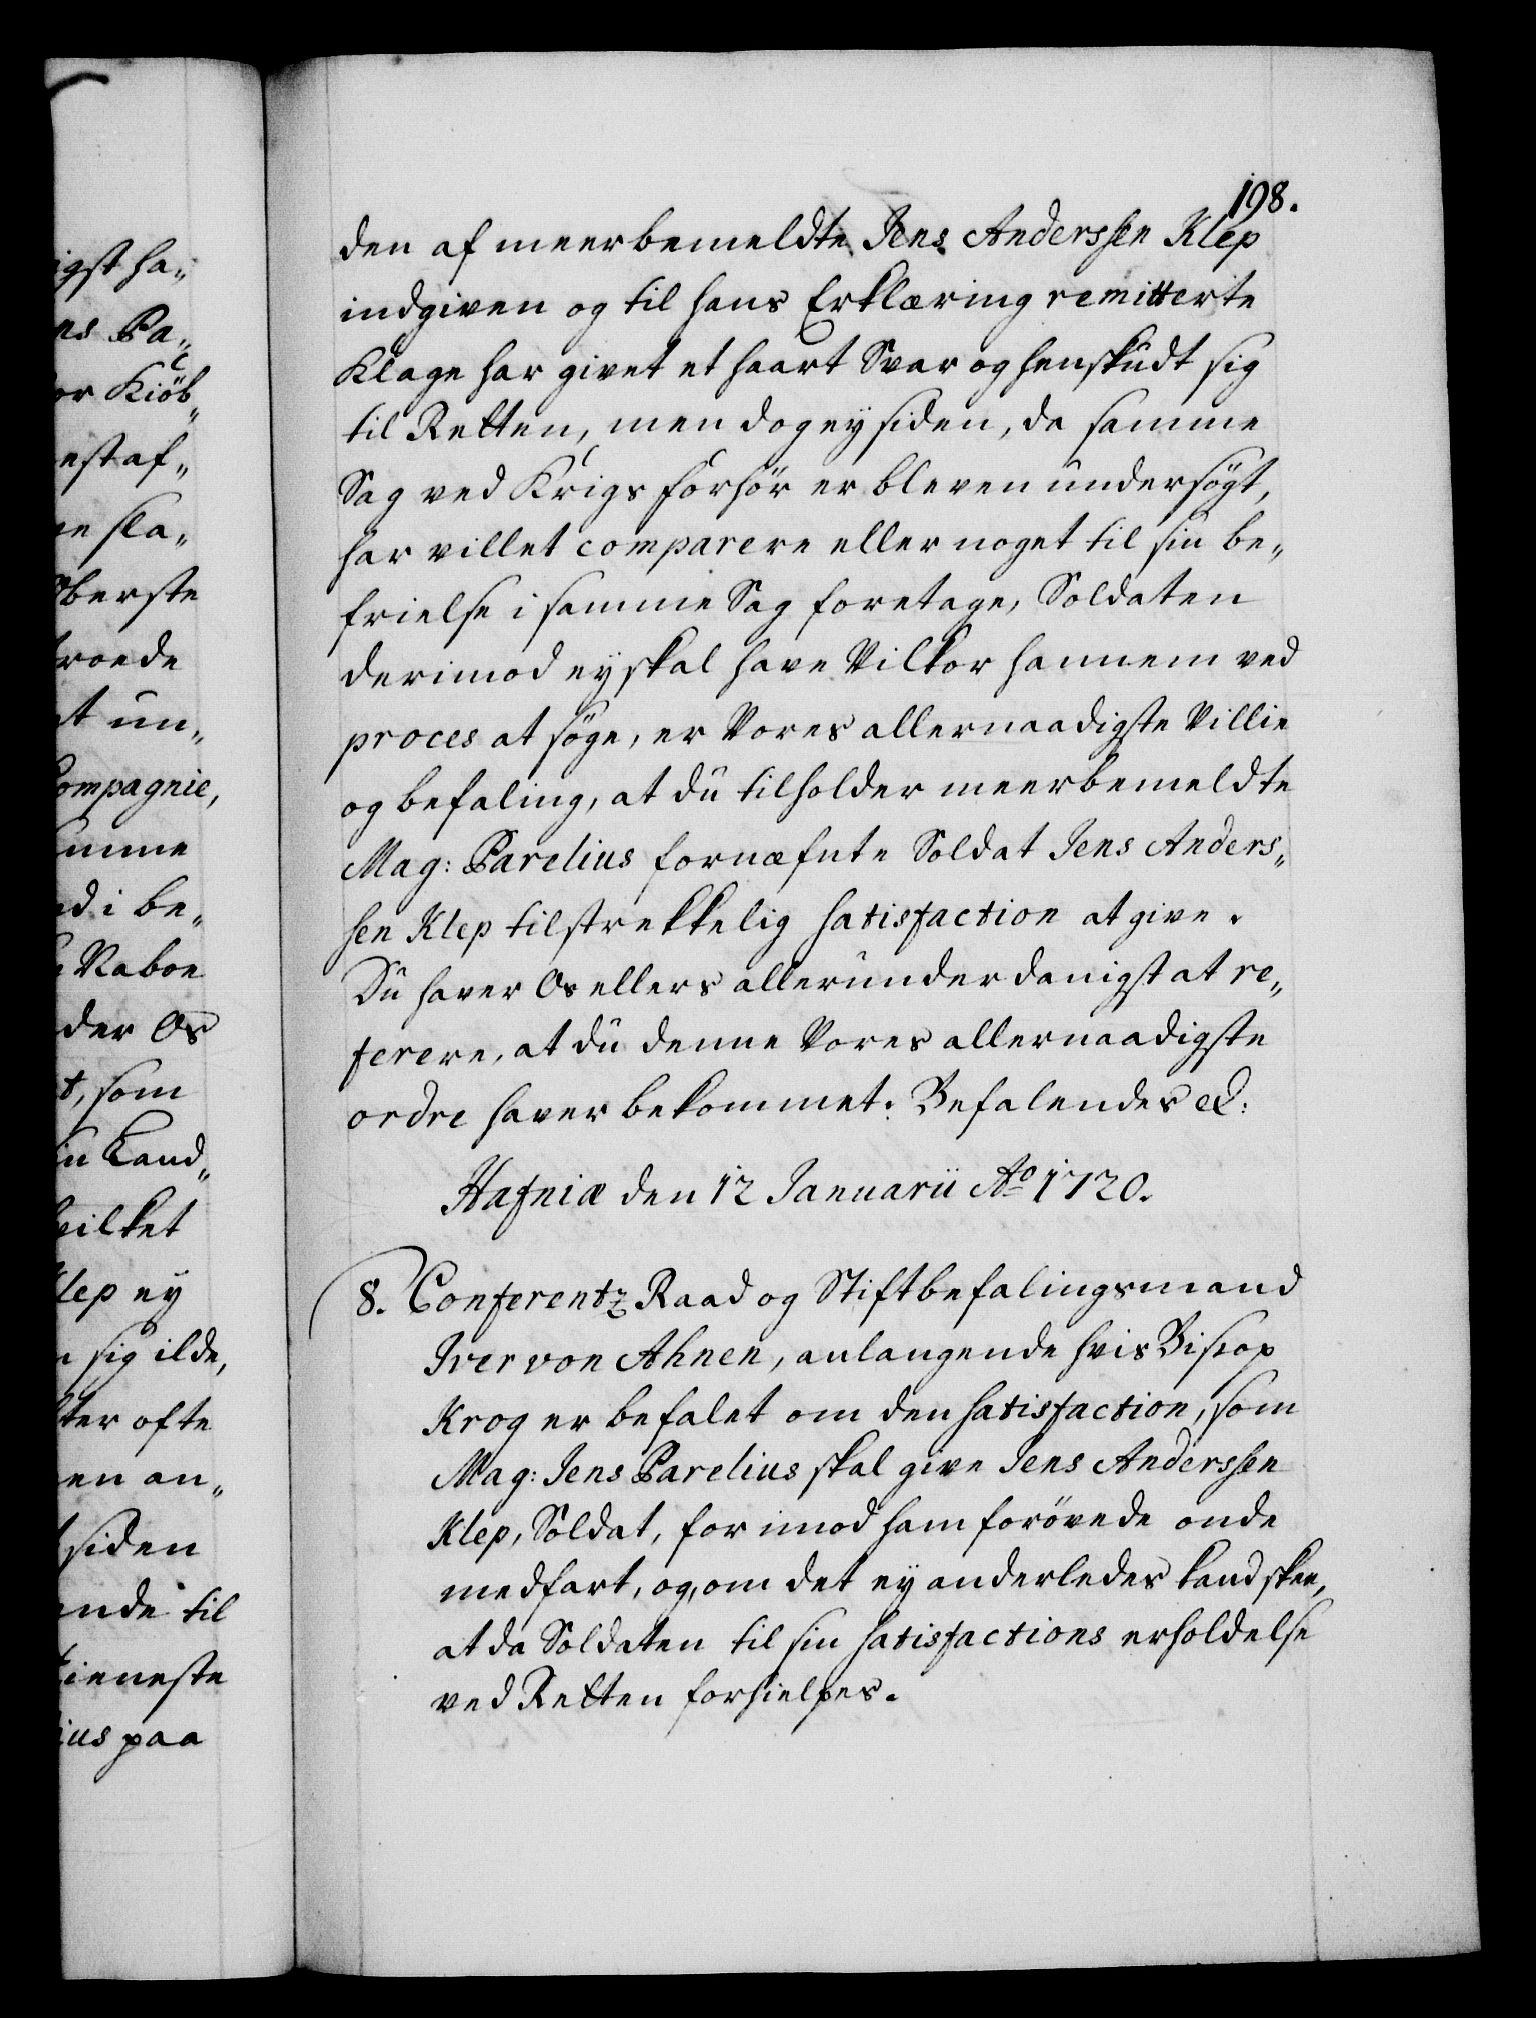 198.
den af meerbemeldte Jens Anderssen Klep
indgiven og til hans Erklæring remitterte
Klage har givet et haart Svar og henskudt sig
til Retten, men dog ey siden, da samme
Sag ved Krigs forhör er bleven undersögt,
har villet comparere eller noget til sin be„
frielse i samme Sag foretage, Soldaten
derimod ey skal have Vilkor hannem ved
proces at söge, er Vores allernaadigste Villie
og befaling, at du tilholder meerbemeldte
Mag: Parelius fornæfnte Soldat Jens Anders„
sen Klep tilstrekkelig satisfaction at give.
Du haver Os ellers allerunderdanigst at re„
ferere, at du denne Vores allernaadigste
ordre haver bekommet. Befalendes &:
Hafniæ den 12 Januarii Ao 1720.
8. Conferentz Raad og Stiftbefalingsmand
Iver von Ahnen, anlangende hvis Biscop
Krog er befalet om den satisfaction, som
Mag: Jens Parelius skal give Jens Anderssen
Klep, Soldat, for imod ham forövede onde
medfart, og, om det ey anderledes kand skee,
at da Soldaten til sin satisfactions erholdelse
ved Retten forhielpes.
igst ha„
ns Pa„
or Kiöb„
est af„
ne sla„
Oberste
troede
at un„
Compagnie,
amme
nd i be„
Naboe
der Os
t, som
in Land„
hvilket
Klep ey
sig ilde,
ter ofte
en an„
siden
ende til
tieneste
ius paa